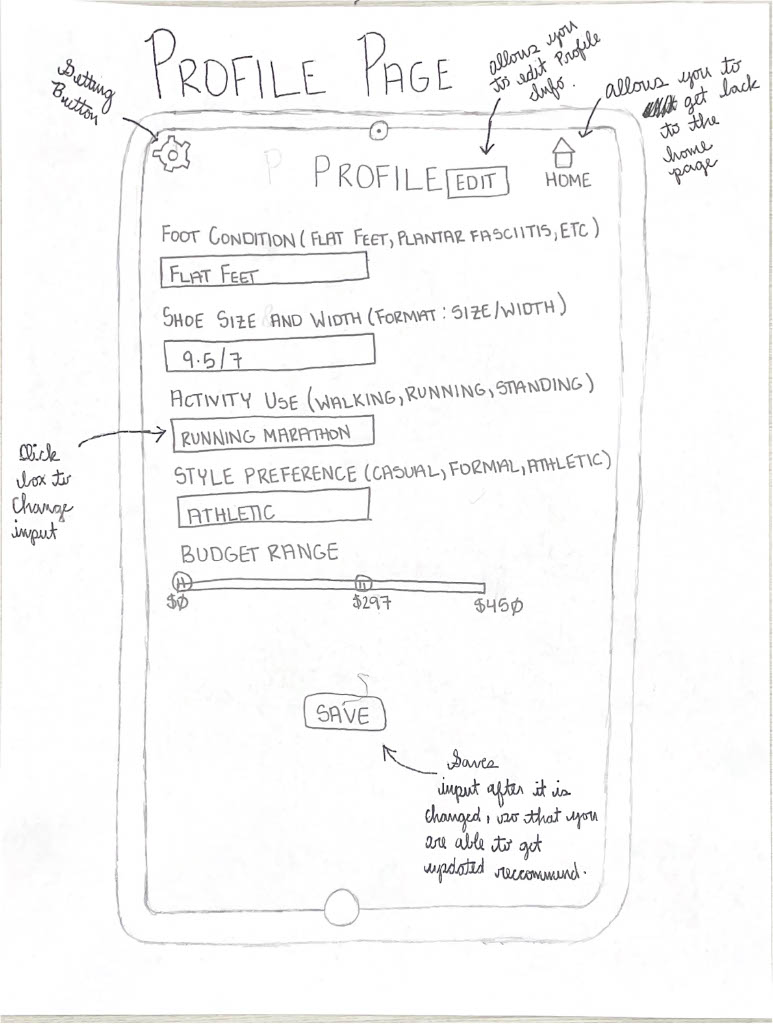 PROFILE PAGE
Setting
Button
allows you
to edit Profile
Info.
allows you to
get back
to the
home
page
PROFILE
EDIT
HOME
FOOT CONDITION (FLAT FEET, PLANTAR FASCIITIS, ETC)
FLAT FEET
SHOE SIZE AND WIDTH (FORMAT: SIZE/WIDTH)
9.5/7
ACTIVITY USE (WALKING, RUNNING, STANDING)
RUNNING MARATHON
Click
box to
change
input
STYLE PREFERENCE (CASUAL, FORMAL, ATHLETIC)
ATHLETIC
BUDGET RANGE
$0 $297 $450
SAVE
Saves
input after it is
changed, so that you
are able to get
updated reccommend.